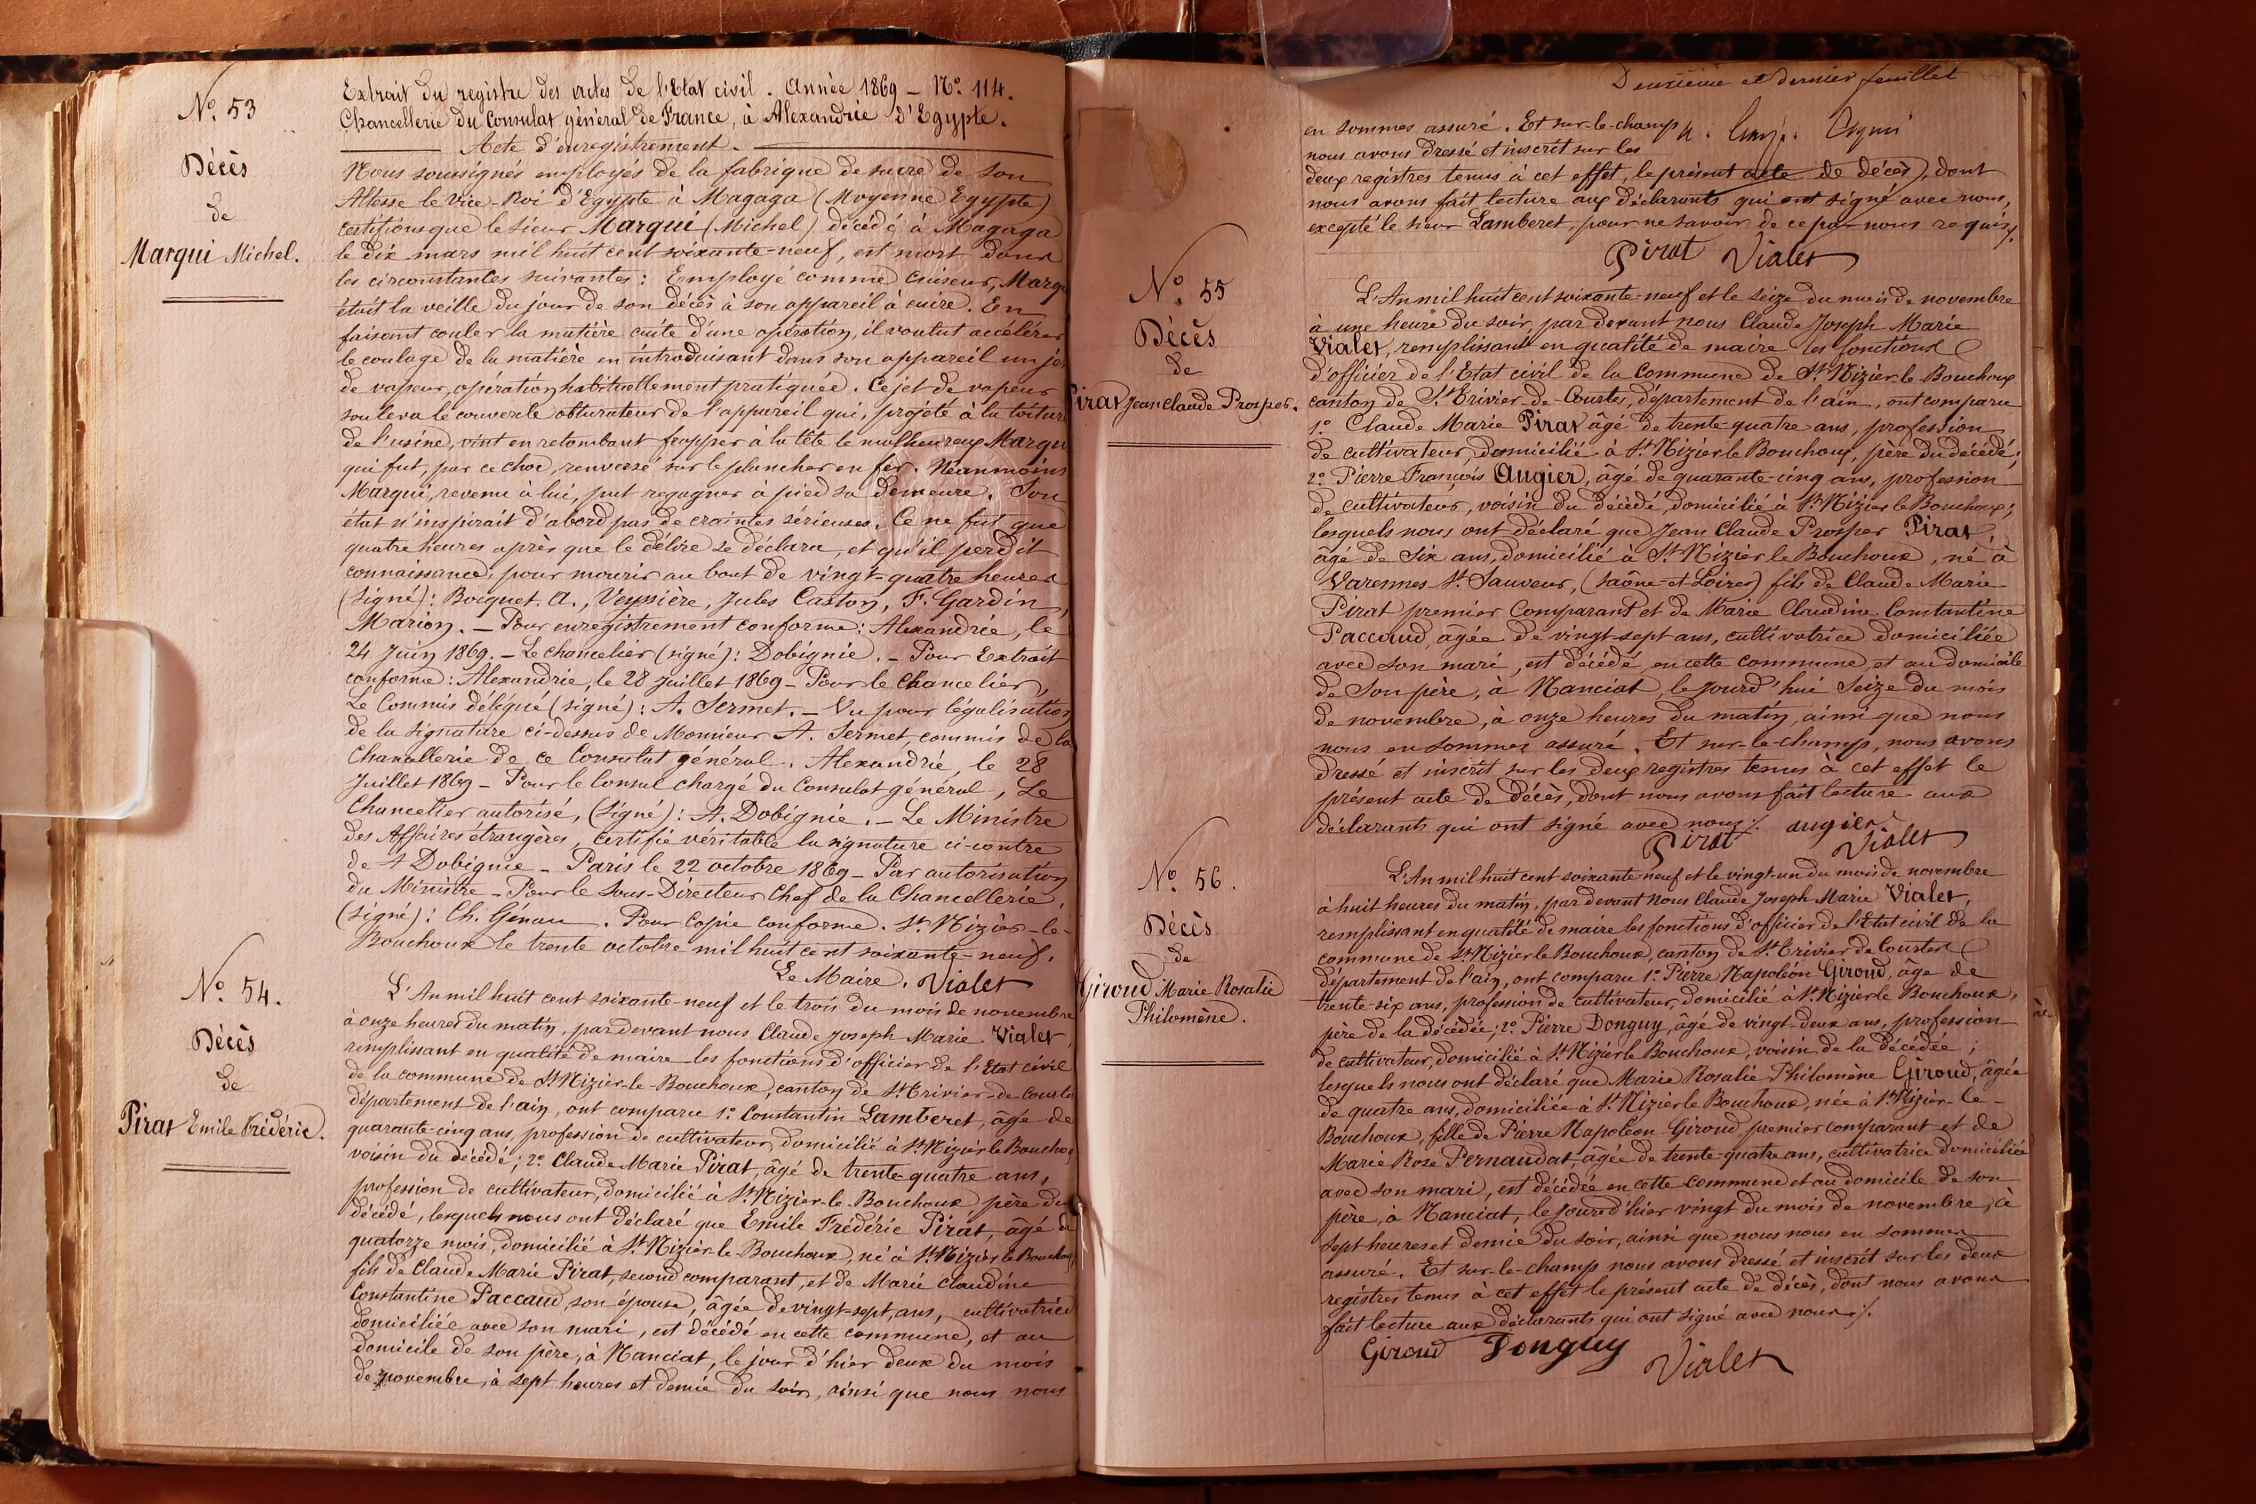 N° 53
Décès
de
Marqui Michel.
Extrait du registre des actes de l'Etat civil. Année 1869 – N° 114.
Chancellerie du Consulat général de France, à Alexandrie d'Egypte.
Acte d'enregistrement.
Nous soussignés employés de la fabrique de sucre de Son
Altesse le Vice-Roi d'Egypte à Magaga (Moyenne Egypte)
certifions que le sieur Marqui (Michel) décédé à Magaga
le dix mars mil huit cent soixante-neuf, est mort dans
les circonstantes suivantes : Employé comme cuiseur, Marqu
était la veille du jour de son décès à son appareil à cuire. En
faisant couler la matière cuite d'une opération, il voulut accélérer
le coulage de la matière en introduisant dans son appareil un je
de vapeur, opération habituellement pratiquée. Ce jet de vapeur
souleva le couvercle obturateur de l'appareil qui, projeté à la toitur
de l'usine, vint en retombant frapper à la tête le malheureux Marqu
qui fut, par ce choc, renversé sur le plancher en fer. Néanmoins
Marqui, revenu à lui, put regagner à pied sa demeure. Son
état n'inspirait d'abord pas de craintes sérieuses. Ce ne fut que
quatre heures après que le délire se déclara, et qu'il perdit
connaissance, pour mourir au bout de vingt-quatre heures
(signé) : Bocquet. A., Veyssière, Jules Caston, F. Gardin,
Marion. – Pour enregistrement conforme : Alexandrie, le
24 Juin 1869. – Le chancelier (signé) : Dobignie. – Pour Extrait
conforme : Alexandrie, le 28 Juillet 1869 – Pour le Chancelier,
Le Commis délégué (signé) : A. Sermet. – Vu pour légalisation
de la signature ci-dessus de Monsieur A. Sermet, commis de la
Chancellerie de ce Consulat général. Alexandrie, le 28
Juillet 1869 – Pour le Consul chargé du Consulat général, Le
Chancelier autorisé, (signé) : A. Dobignie. – Le Ministre
des Affaires étrangères certifie véritable la signature ci-contre
de A Dobignie – Paris le 22 octobre 1869 – Par autorisation
du Ministre – Pour le Sous-Directeur Chef de la Chancellerie,
(signé) : Ch. Génau. Pour Copie conforme. St Nizier-le-
Bouchoux le trente octobre mil huit cent soixante-neuf.
Le Maire. Vialet
N° 54.
Décès
de
Pirat Emile Frédéric.
L'An mil huit cent soixante-neuf et le trois du mois de novembre
à onze heures du matin, par devant nous Claude Joseph Marie Vialet,
remplissant en qualité de maire les fonctions d'officier de l'Etat civil
de la commune de St Nizier-le-Bouchoux, canton de St Trivier-de-Courte
département de l'ain, ont comparu 1° Constantin Lamberet, âgé de
quarante-cinq ans, profession de cultivateur, domicilié à St Nizier le Boucho
voisin du décédé ; 2° Claude Marie Pirat, âgé de trente-quatre ans,
profession de cultivateur, domicilié à St Nizier-le-Bouchoux, père du
décédé, lesquels nous ont déclaré que Emile Frédéric Pirat, âgé de
quatorze mois, domicilié à St Nizier-le-Bouchoux, né à St Nizier le Bouchou
fils de Claude Marie Pirat, second comparant, et de Marie Claudine
Constantine Paccaud, son épouse, âgée de vingt-sept, ans, cultivatrice
domiciliée avec son mari, est décédé en cette commune, et au
domicile de son père, à Nanciat, le jour d'hier deux du mois
de novembre, à sept heures et demie du soir, ainsi que nous nous
Deuxième et dernier feuillet
en sommes assuré. Et sur-le-champ
nous avons dressé et inscrit sur les
deux registres tenus à cet effet, le présent acte de décès, dont
nous avons fait lecture aux déclarants qui ont signé avec nous,
excepté le sieur Lamberet, pour ne savoir de ce par nous requis.
Pirat Vialet
N° 55
Décès
de
Pirat Jean Claude Prosper.
L'An mil huit cent soixante-neuf et le seize du mois de novembre
à une heure du soir, par devant nous Claude Joseph Marie
Vialet, remplissant en qualité de maire les fonctions
d'officier de l'Etat civil de la commune de St Nizier le Bouchoux
canton de St Trivier-de-Courtes, département de l'ain, ont comparu
1° Claude Marie Pirat âgé de trente-quatre ans, profession
de cultivateur, domicilié à St Nizier le Bouchoux, père du décédé ;
2° Pierre François Augier, âgé de quarante-cinq ans, profession
de cultivateur, voisin du décédé, domicilié à St Nizier le Bouchoux ;
lesquels nous ont déclaré que Jean Claude Prosper Pirat,
âgé de six ans, domicilié à St Nizier le Bouchoux, né à
Varennes St Sauveur, (Saône-et-Loire) fils de Claude Marie
Pirat premier comparant et de Marie Claudine Constantine
Paccaud, âgée de vingt-sept ans, cultivatrice domiciliée
avec son mari, est décédé en cette commune, et au domicile
de Son père, à Nanciat, le jourd'hui seize du mois
de novembre, à onze heures du matin, ainsi que nous
nous en sommes assuré. Et sur-le-champ, nous avons
dressé et inscrit sur les deux registres tenus à cet effet le
présent acte de décès, dont nous avons fait lecture aux
déclarants qui ont signé avec nous. augier
Pirat Vialet
N° 56.
Décès
de
Giroud Marie Rosalie
Philomène.
L'An mil huit cent soixante-neuf et le vingt-un du mois de novembre
à huit heures du matin, par devant nous Claude Joseph Marie Vialet,
remplissant en qualité de maire les fonctions d'officier de l'Etat civil de la
commune de St Nizier le Bouchoux, canton de St Trivier de Courtes
département de l'ain, ont comparu 1° Pierre Napoléon Giroud, âgé de
trente-six ans, profession de cultivateur, domicilié à St Nizier le Bouchoux,
père de la décédée ; 2° Pierre Donguy, âgé de vingt-deux ans, profession
de cultivateur, domicilié à St Nizier le Bouchoux, voisin de la décédée ;
lesquels nous ont déclaré que Marie Rosalie Philomène Giroud, âgée
de quatre ans, domiciliée à St Nizier le Bouchoux, née à St Nizier-le-
Bouchoux, fille de Pierre Napoléon Giroud, premier comparant et de
Marie Rose Pernaudat, âgée de trente-quatre ans, cultivatrice domiciliée
avec son mari, est décédée en cette commune et au domicile de son
père, à Nanciat, le jourd'hier vingt du mois de novembre, à
sept heures et demie du soir, ainsi que nous nous en sommes
assuré. Et sur-le-champ nous avons dressé et inscrit sur les deux
registres tenus à cet effet le présent acte de décès, dont nous avons
fait lecture aux déclarants qui ont signé avec nous.
Giroud Donguy
Vialet